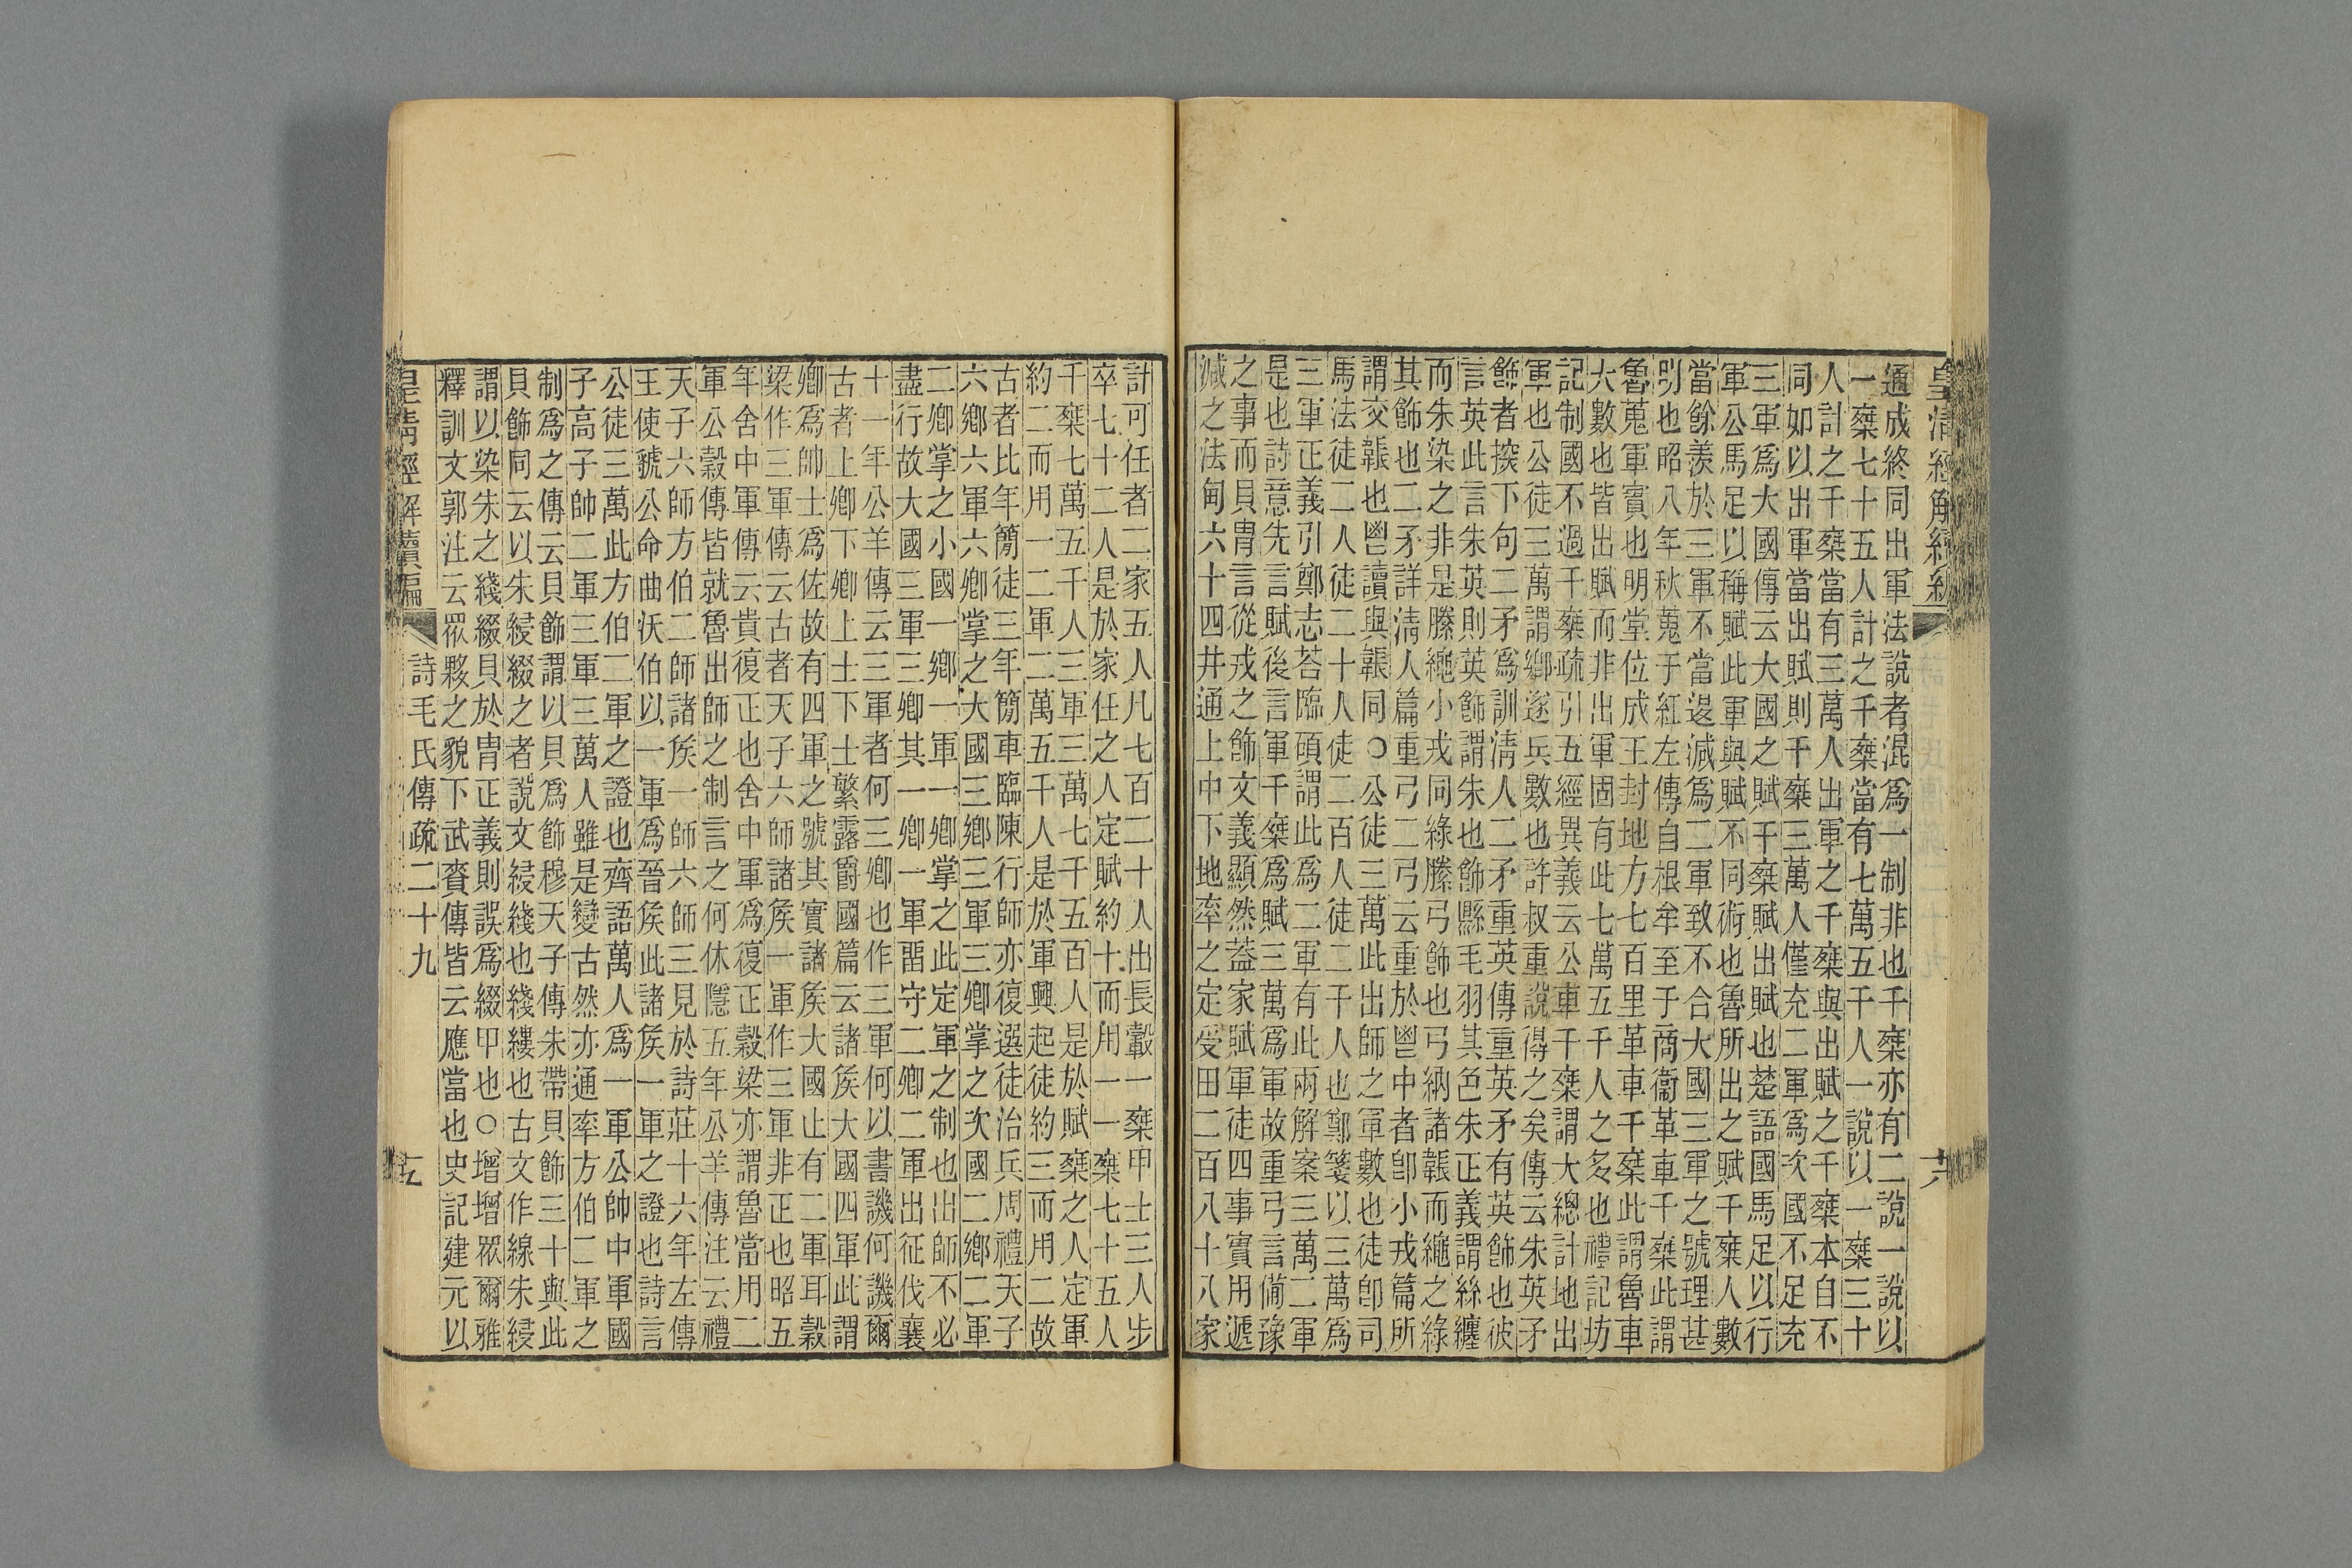 皇清經解續編
通成終同出軍法說者混爲一制非也千椉亦有二說一說以
一椉七十五人計之千椉當有七萬五千人一說以一椉三十
人計之千椉當有三萬人出軍之千椉與出賦之千椉本自不
同如以出軍當出賦則千椉三萬人僅充二軍爲次國不足充
三軍爲大國傳云大國之賦千椉賦出賦也楚語國馬足以行
軍公馬足以稱賦此軍與賦不同術也魯所出之賦千椉人數
當餘羨於三軍不當逿減爲二軍致不合大國三軍之號理甚
明也昭八年秋蒐于紅左傳自根牟至于商衞革車千椉此謂
魯蒐軍實也明堂位成王封地方七百里革車千椉此謂魯車
大數也皆出賦而非出軍固有此七萬五千人之多也禮記坊
記制國不過千椉疏引五經異義云公車千椉謂大總計地出
軍也公徒三萬謂鄉遂兵數也許叔重說得之矣傳云朱英矛
飾者揬下句二矛爲訓淸人二矛重英傳重英矛有英飾也彼
言英此言朱英則英飾謂朱也飾縣毛羽其色朱正義謂絲纏
而朱染之非是縢繩小戎同綠縢弓飾也弓納諸韔而繩之綠
其飾也二矛詳淸人篇重弓二弓云重於鬯中者卽小戎篇所
謂交韔也鬯讀與韔同○公徒三萬此出師之軍數也徒卽司
馬法徒二人徒二十人徒二百人徒二千人也鄭箋以三萬爲
三軍正義引鄭志荅臨碩謂此爲二軍有此兩解案三萬二軍
是也詩意先言賦後言軍千椉爲賦三萬爲軍故重弓言僃豫
之事而貝冑言從戎之飾文義顯然蓋家賦軍徒四事實用遞
減之法甸六十四井通上中下地率之定受田二百八十八家
計可任者二家五人凡七百二十人出長轂一椉甲士三人步
卒七十二人是於家任之人定賦約十而用一一椉七十五人
千椉七萬五千人三軍三萬七千五百人是於賦椉之人定軍
約二而用一二軍二萬五千人是於軍興起徒約三而用二故
古者比年簡徒三年簡車臨陳行師亦復選徒治兵周禮天子
六鄉六軍六鄉掌之大國三鄉三軍三鄉掌之次國二鄉二軍
二鄉掌之小國一鄉一軍一鄉掌之此定軍之制也出師不必
盡行故大國三軍三卿其一鄉一軍畱守二卿二軍出征伐襄
十一年公羊傳云三軍者何三卿也作三軍何以書譏何譏爾
古者上卿下卿上士下士繁露爵國篇云諸矦大國四軍此謂
卿爲帥士爲佐故有四軍之號其實諸矦大國止有二軍耳穀
梁作三軍傳云古者天子六師諸矦一軍作三軍非正也昭五
年舍中軍傳云貴復正也舍中軍爲復正穀梁亦謂魯當用二
軍公穀傳皆就魯出師之制言之何休隱五年公羊傳注云禮
天子六師方伯二師諸矦一師六師三見於詩莊十六年左傳
王使虢公命曲沃伯以一軍爲晉矦此諸矦一軍之證也詩言
公徒三萬此方伯二軍之證也齊語萬人爲一軍公帥中軍國
子高子帥二軍三軍三萬人雖是變古然亦通率方伯二軍之
制爲之傳云貝飾謂以貝爲飾穆天子傳朱帶貝飾三十與此
貝飾同云以朱綅綴之者說文綅綫也綫縷也古文作線朱綅
謂以染朱之綫綴貝於冑正義則誤爲綴甲也○增增眾爾雅
釋訓文郭注云眾夥之貌下武賚傳皆云應當也史記建元以
皇清經解續編
詩毛氏傳疏二十九